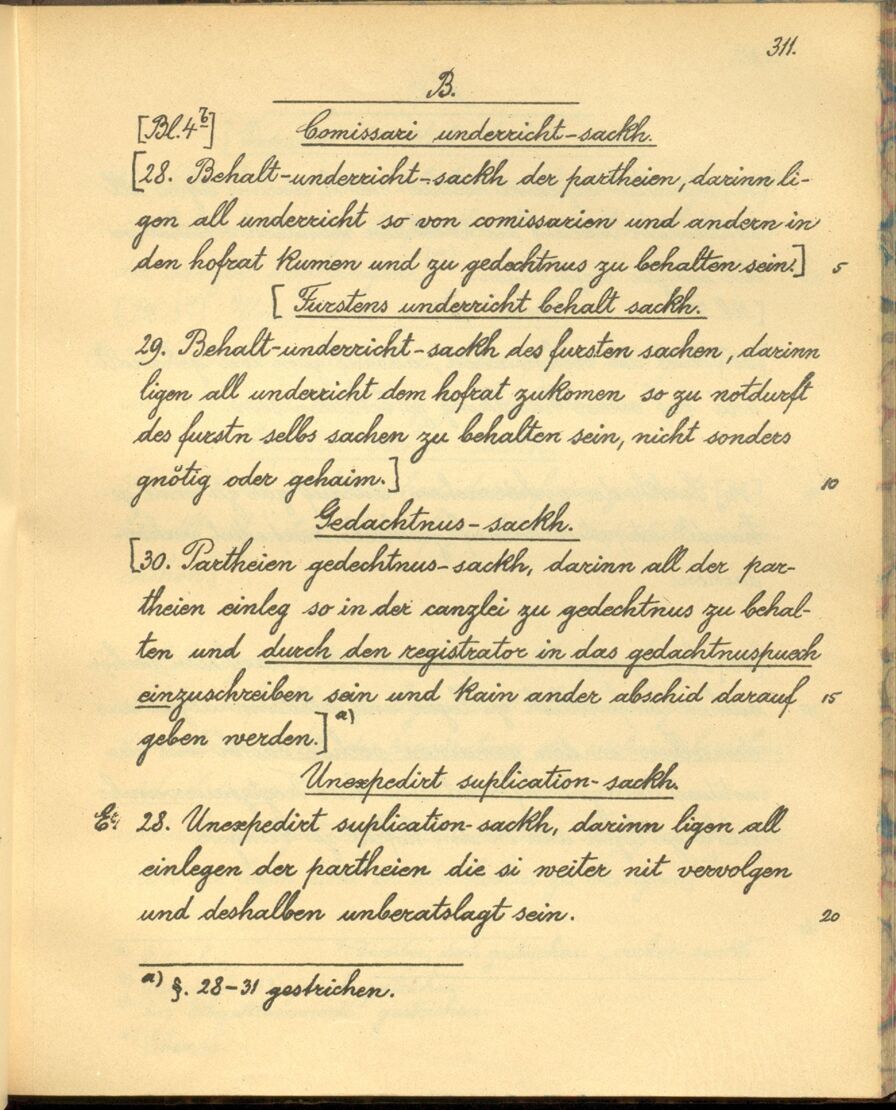 311.
B.
[Bl. 4b]
Comissari underricht-sackh.
[28. Behalt-underricht-sackh der partheien, darinn li-
gen all underricht so von comissarien und andern in
den hofrat kumen und zu gedechtnus zu behalten sein.] 5
[Furstens underricht behalt sackh.
29. Behalt-underricht-sackh des fursten sachen, darinn
ligen all underricht dem hofrat zukomen so zu notdurft
des furstn selbs sachen zu behalten sein, nicht sonders
gnötig oder gehaim.] 10
Gedachtnus-sackh.
[30. Partheien gedechtnus-sackh, darinn all der par-
theien einleg so in der canzlei zu gedechtnus zu behal-
ten und durch den registrator in das gedachtnuspuech
einzuschreiben sein und kain ander abschid darauf 15
geben werden.] a)
Unexpedirt suplication-sackh.
28. Unexpedirt suplication-sackh, darinn ligen all
einlegen der partheien die si weiter nit vervolgen
und deshalben unberatslagt sein. 20
a) §. 28-31 gestrichen.